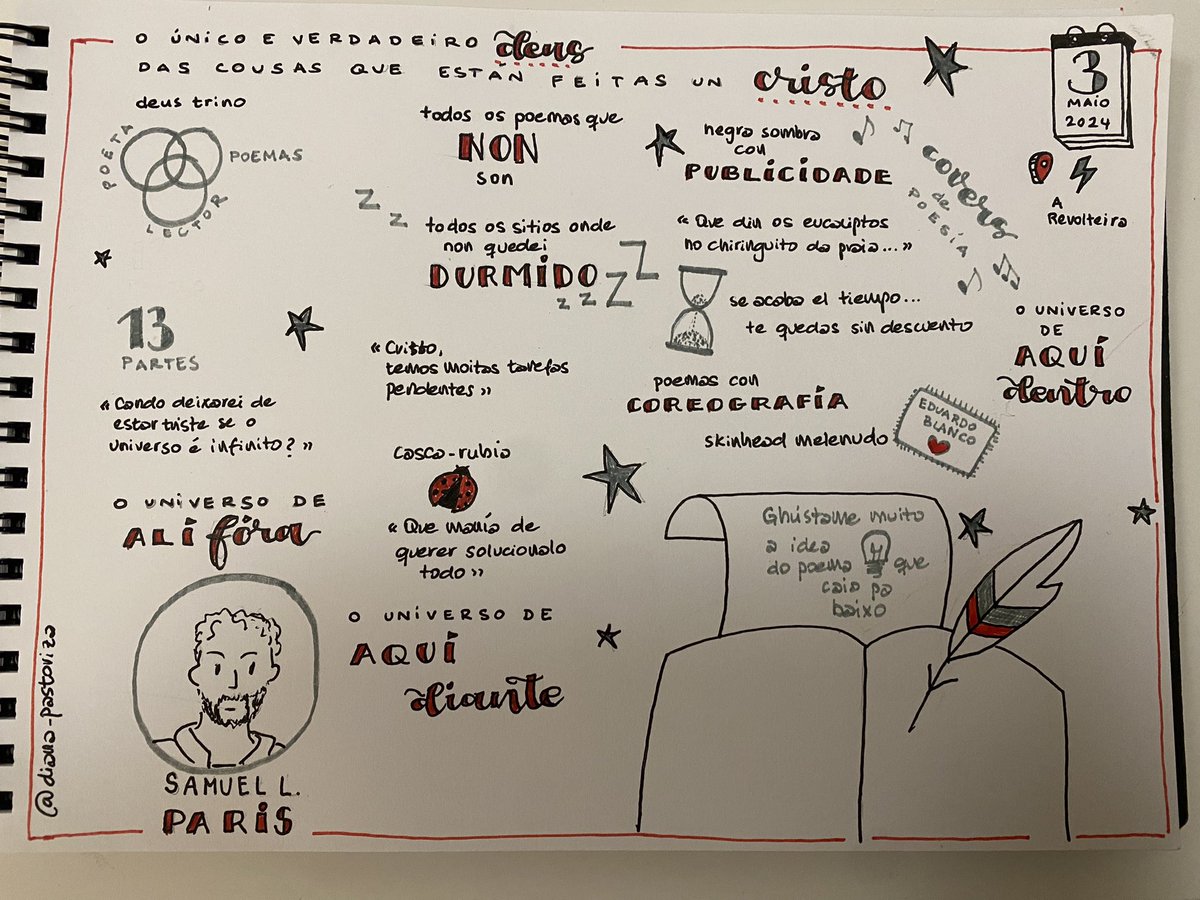 O ÚNICO E VERDADEIRO deus
DAS COUSAS QUE ESTÁN FEITAS UN cristo
3
MAIO
2024
A
Revolteira
deus trino
POETA
POEMAS
LECTOR
13
PARTES
« Cando deixarei de
estar triste se o
universo é infinito? »
O UNIVERSO DE
ALÍ fóra
SAMUEL L.
PARIS
@diana-pastoriza
todos os poemas que
NON
son
Z
Z
todos os sitios onde
non quedei
DURMIDO
z z Z Z
« Cristo,
temos moitas tarefas
pendentes »
casca-rubia
« Que manía de
querer solucionalo
todo »
O UNIVERSO DE
AQUÍ
diante
negra sombra
con
PUBLICIDADE
covers
de
POESÍA
« Que din os eucaliptos
no chiringuito da praia... »
se acaba el tiempo...
te quedas sin descuento
poemas con
COREOGRAFÍA
skinhead melenudo
EDUARDO
BLANCO
O UNIVERSO
DE
AQUÍ
dentro
Ghústame muito
a idea
do poema que
caio pa
baixo